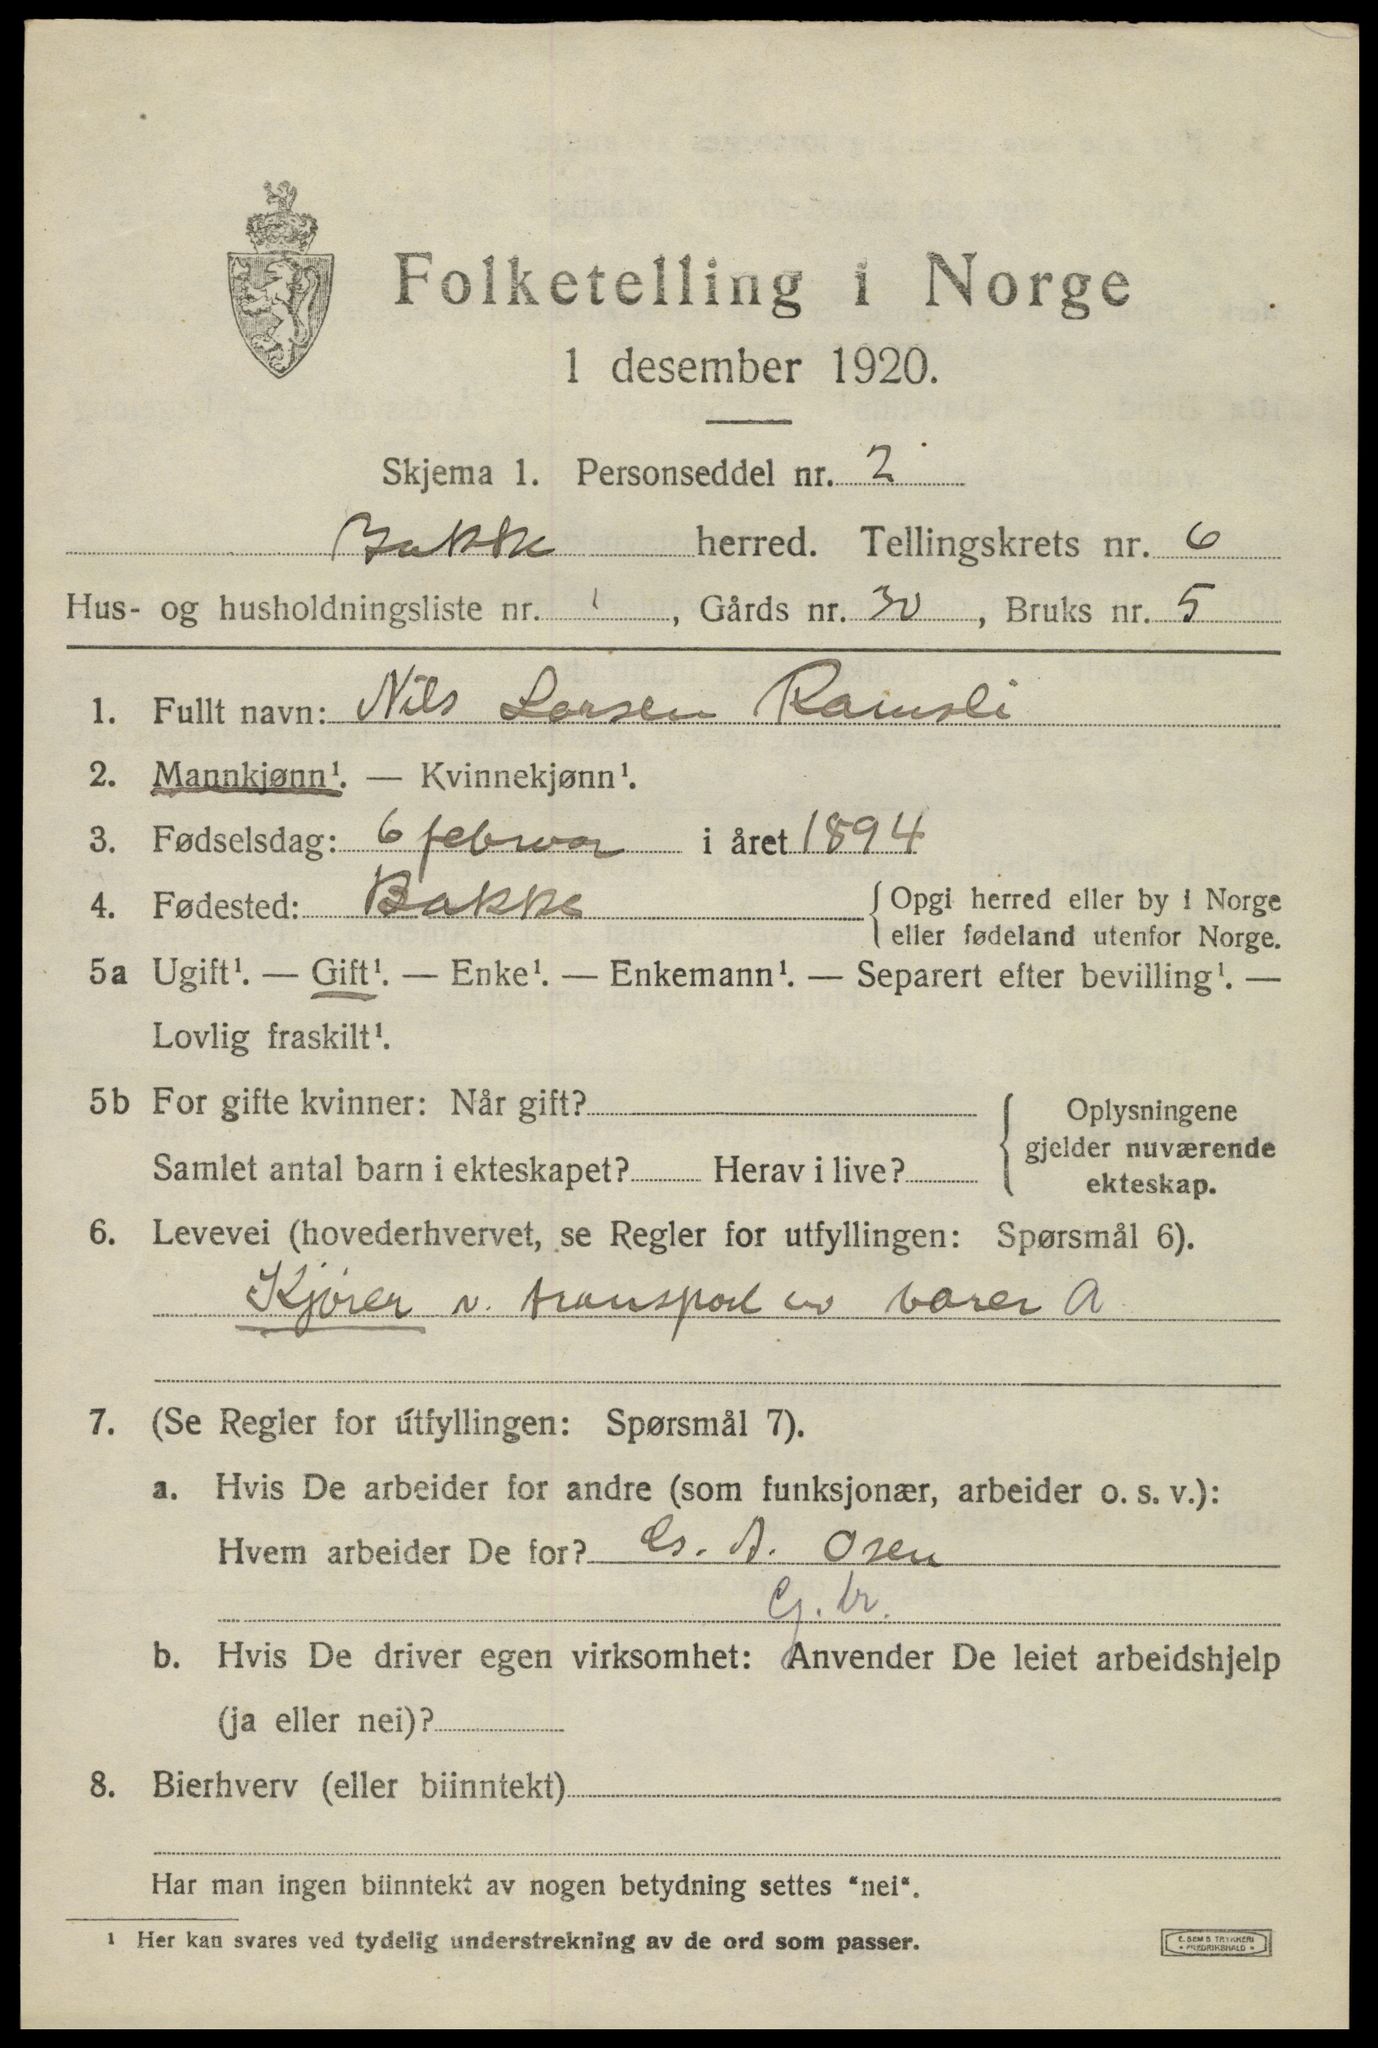 Folketelling i Norge
1 desember 1920.
Skjema 1. Personseddel nr. 2
Bakke herred. Tellingskrets nr. 6
Hus- og husholdningsliste nr. 1, Gårds nr. 30, Bruks nr. 5
1. Fullt navn: Nils Larsen Ramsli
2. Mannkjønn¹. — Kvinnekjønn¹.
3. Fødselsdag: 6 februar i året 1894
4. Fødested: Bakke { Opgi herred eller by i Norge
eller fødeland utenfor Norge.
5a Ugift¹. — Gift¹. — Enke¹. — Enkemann¹. — Separert efter bevilling¹. —
Lovlig fraskilt¹.
5b For gifte kvinner: Når gift?
Samlet antal barn i ekteskapet? Herav i live?
{ Oplysningene
gjelder nuværende
ekteskap.
6. Levevei (hovederhvervet, se Regler for utfyllingen: Spørsmål 6).
Kjører v. transport av varer A
7. (Se Regler for utfyllingen: Spørsmål 7).
a. Hvis De arbeider for andre (som funksjonær, arbeider o. s. v.):
Hvem arbeider De for? A. Osen
b. Hvis De driver egen virksomhet: Anvender De leiet arbeidshjelp
(ja eller nei)?
8. Bierhverv (eller biinntekt)
Har man ingen biinntekt av nogen betydning settes "nei".
¹ Her kan svares ved tydelig understrekning av de ord som passer.
E. SEM S TRYKKERI
* FREDRIKSHALD *